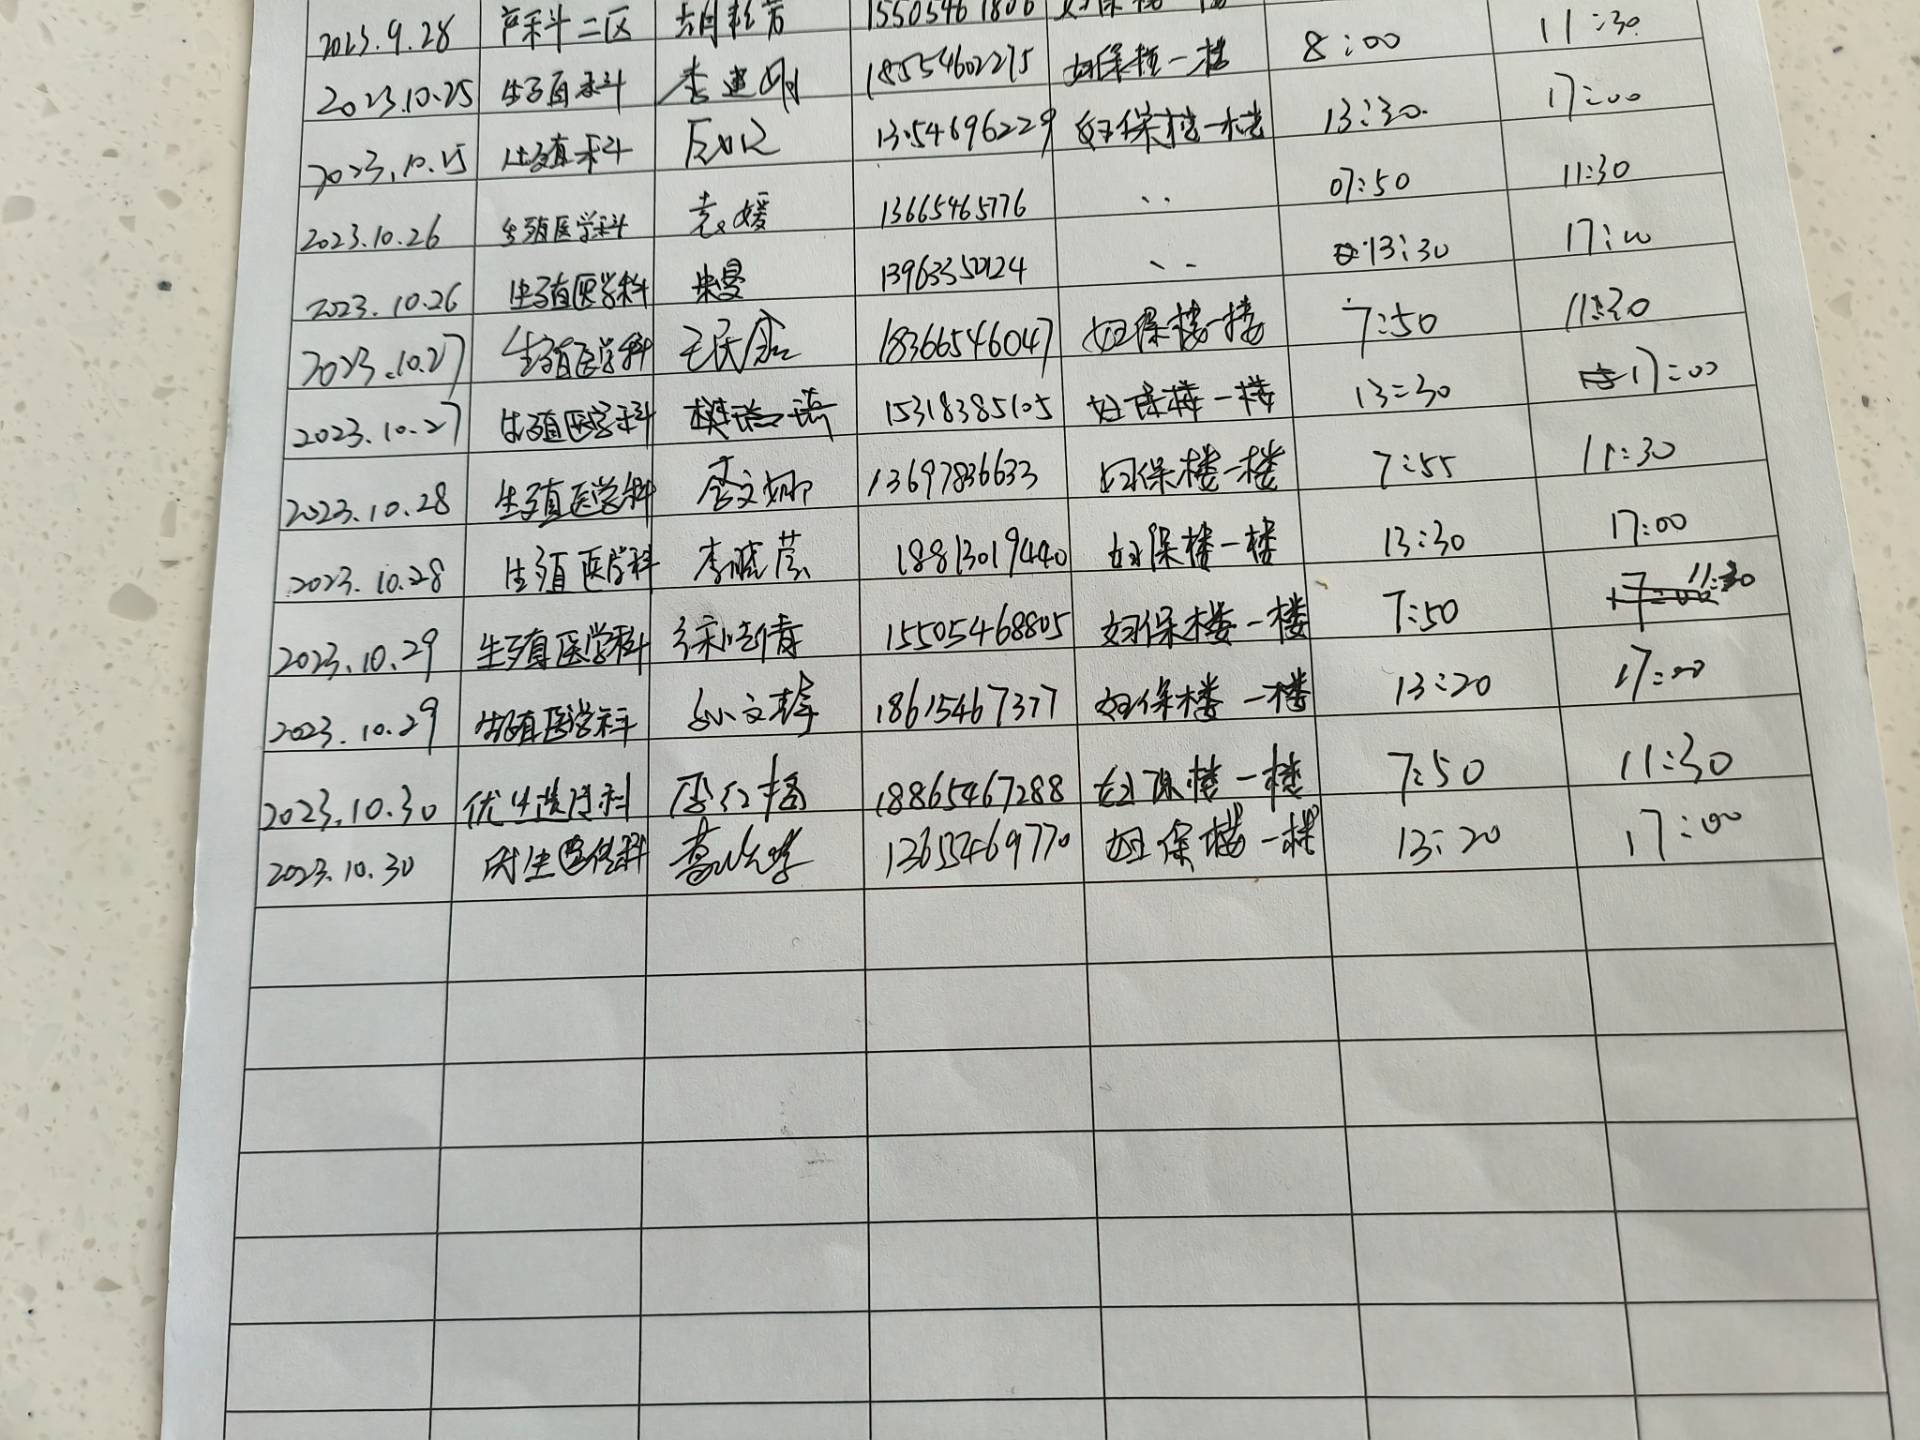 2023.9.28 产科二区 15505461806 妇保楼一楼
2023.10.25 生殖科 李建刚 18554602275 妇保楼一楼 8:00 11:30
2023.10.25 生殖科 13054696229 妇保楼一楼 13:30 17:00
2023.10.26 生殖医学科 袁媛 13665465776 、、 07:50 11:30
2023.10.26 生殖医学科 朱曼 13963350124 、、 13:30 17:00
2023.10.27 生殖医学科 18366546047 妇保楼一楼 7:50 11:30
2023.10.27 生殖医学科 15318385105 妇保楼一楼 13:30 17:00
2023.10.28 生殖医学科 李文娜 13697836633 妇保楼一楼 7:55 11:30
2023.10.28 生殖医学科 18813019440 妇保楼一楼 13:30 17:00
2023.10.29 生殖医学科 15505468805 妇保楼一楼 7:50 11:30
2023.10.29 生殖医学科 18615467377 妇保楼一楼 13:20 17:00
2023.10.30 优生遗传科 18865467288 妇保楼一楼 7:50 11:30
2023.10.30 13655469770 妇保楼一楼 13:20 17:00